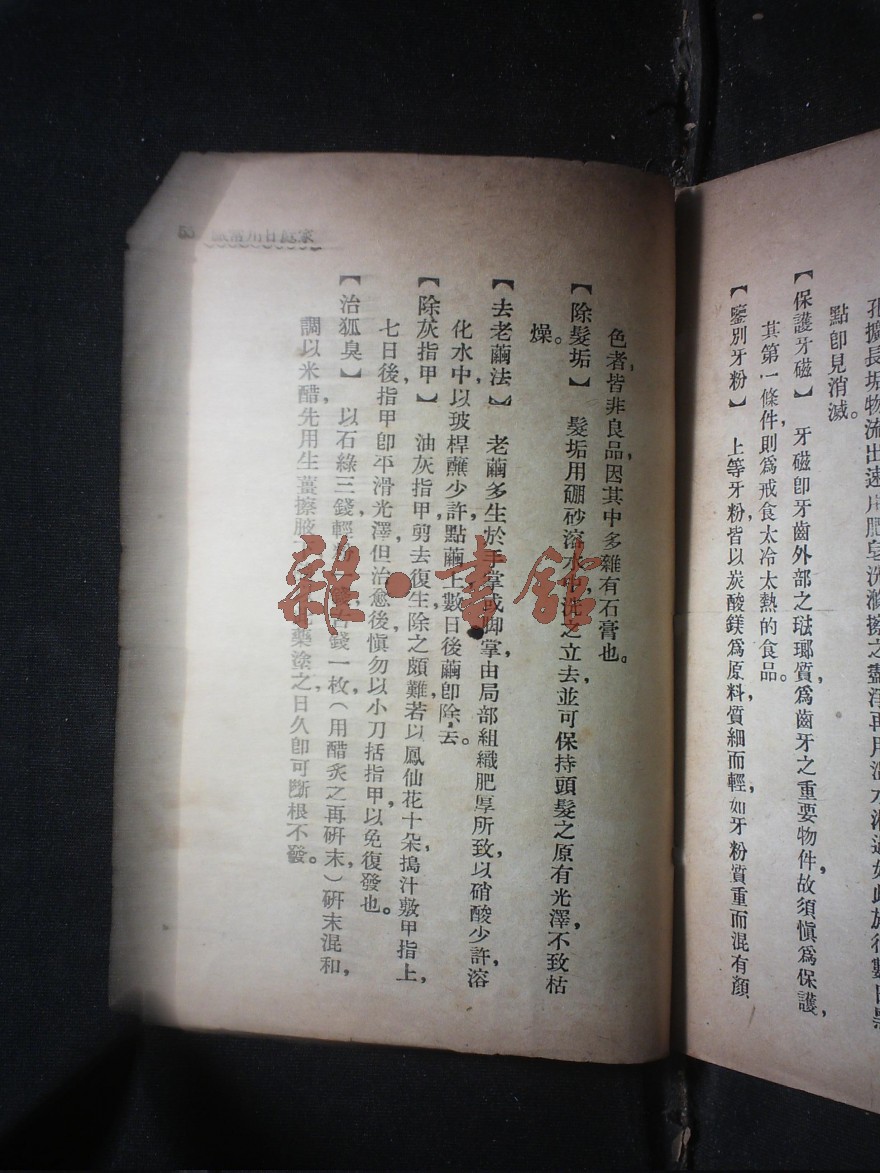 孔擴長垢物流出速用肥皂洗滌擦之盡淨再用溫水淋過如此施行數日點
點卽見消滅。
【保護牙磁】　牙磁卽牙齒外部之琺瑯質，爲齒牙之重要物件，故須愼爲保護，
其第一條件，則爲戒食太冷太熱的食品。
【鑒別牙粉】　上等牙粉，皆以炭酸鎂爲原料，質細而輕，如牙粉質重而混有顏
色者，皆非良品，因其中多雜有石膏也。
【除髮垢】　髮垢用硼砂溶水中，洗之立去，並可保持頭髮之原有光澤，不致枯
燥。
【去老繭法】　老繭多生於手掌或脚掌，由局部組織肥厚所致，以硝酸少許，溶
化水中，以玻桿蘸少許，點繭上，數日後繭卽除去。
【除灰指甲】　油灰指甲，剪去復生，除之頗難，若以鳳仙花十朵，搗汁敷甲指上，
七日後，指甲卽平滑光澤，但治愈後，愼勿以小刀括指甲，以免復發也。
【治狐臭】　以石綠三錢，輕粉錢，古錢一枚，（用醋炙之再硏末，）硏末混和，
調以米醋，先用生薑擦腋藥塗之，日久卽可斷根不發。
家庭日用常識
雜·書館